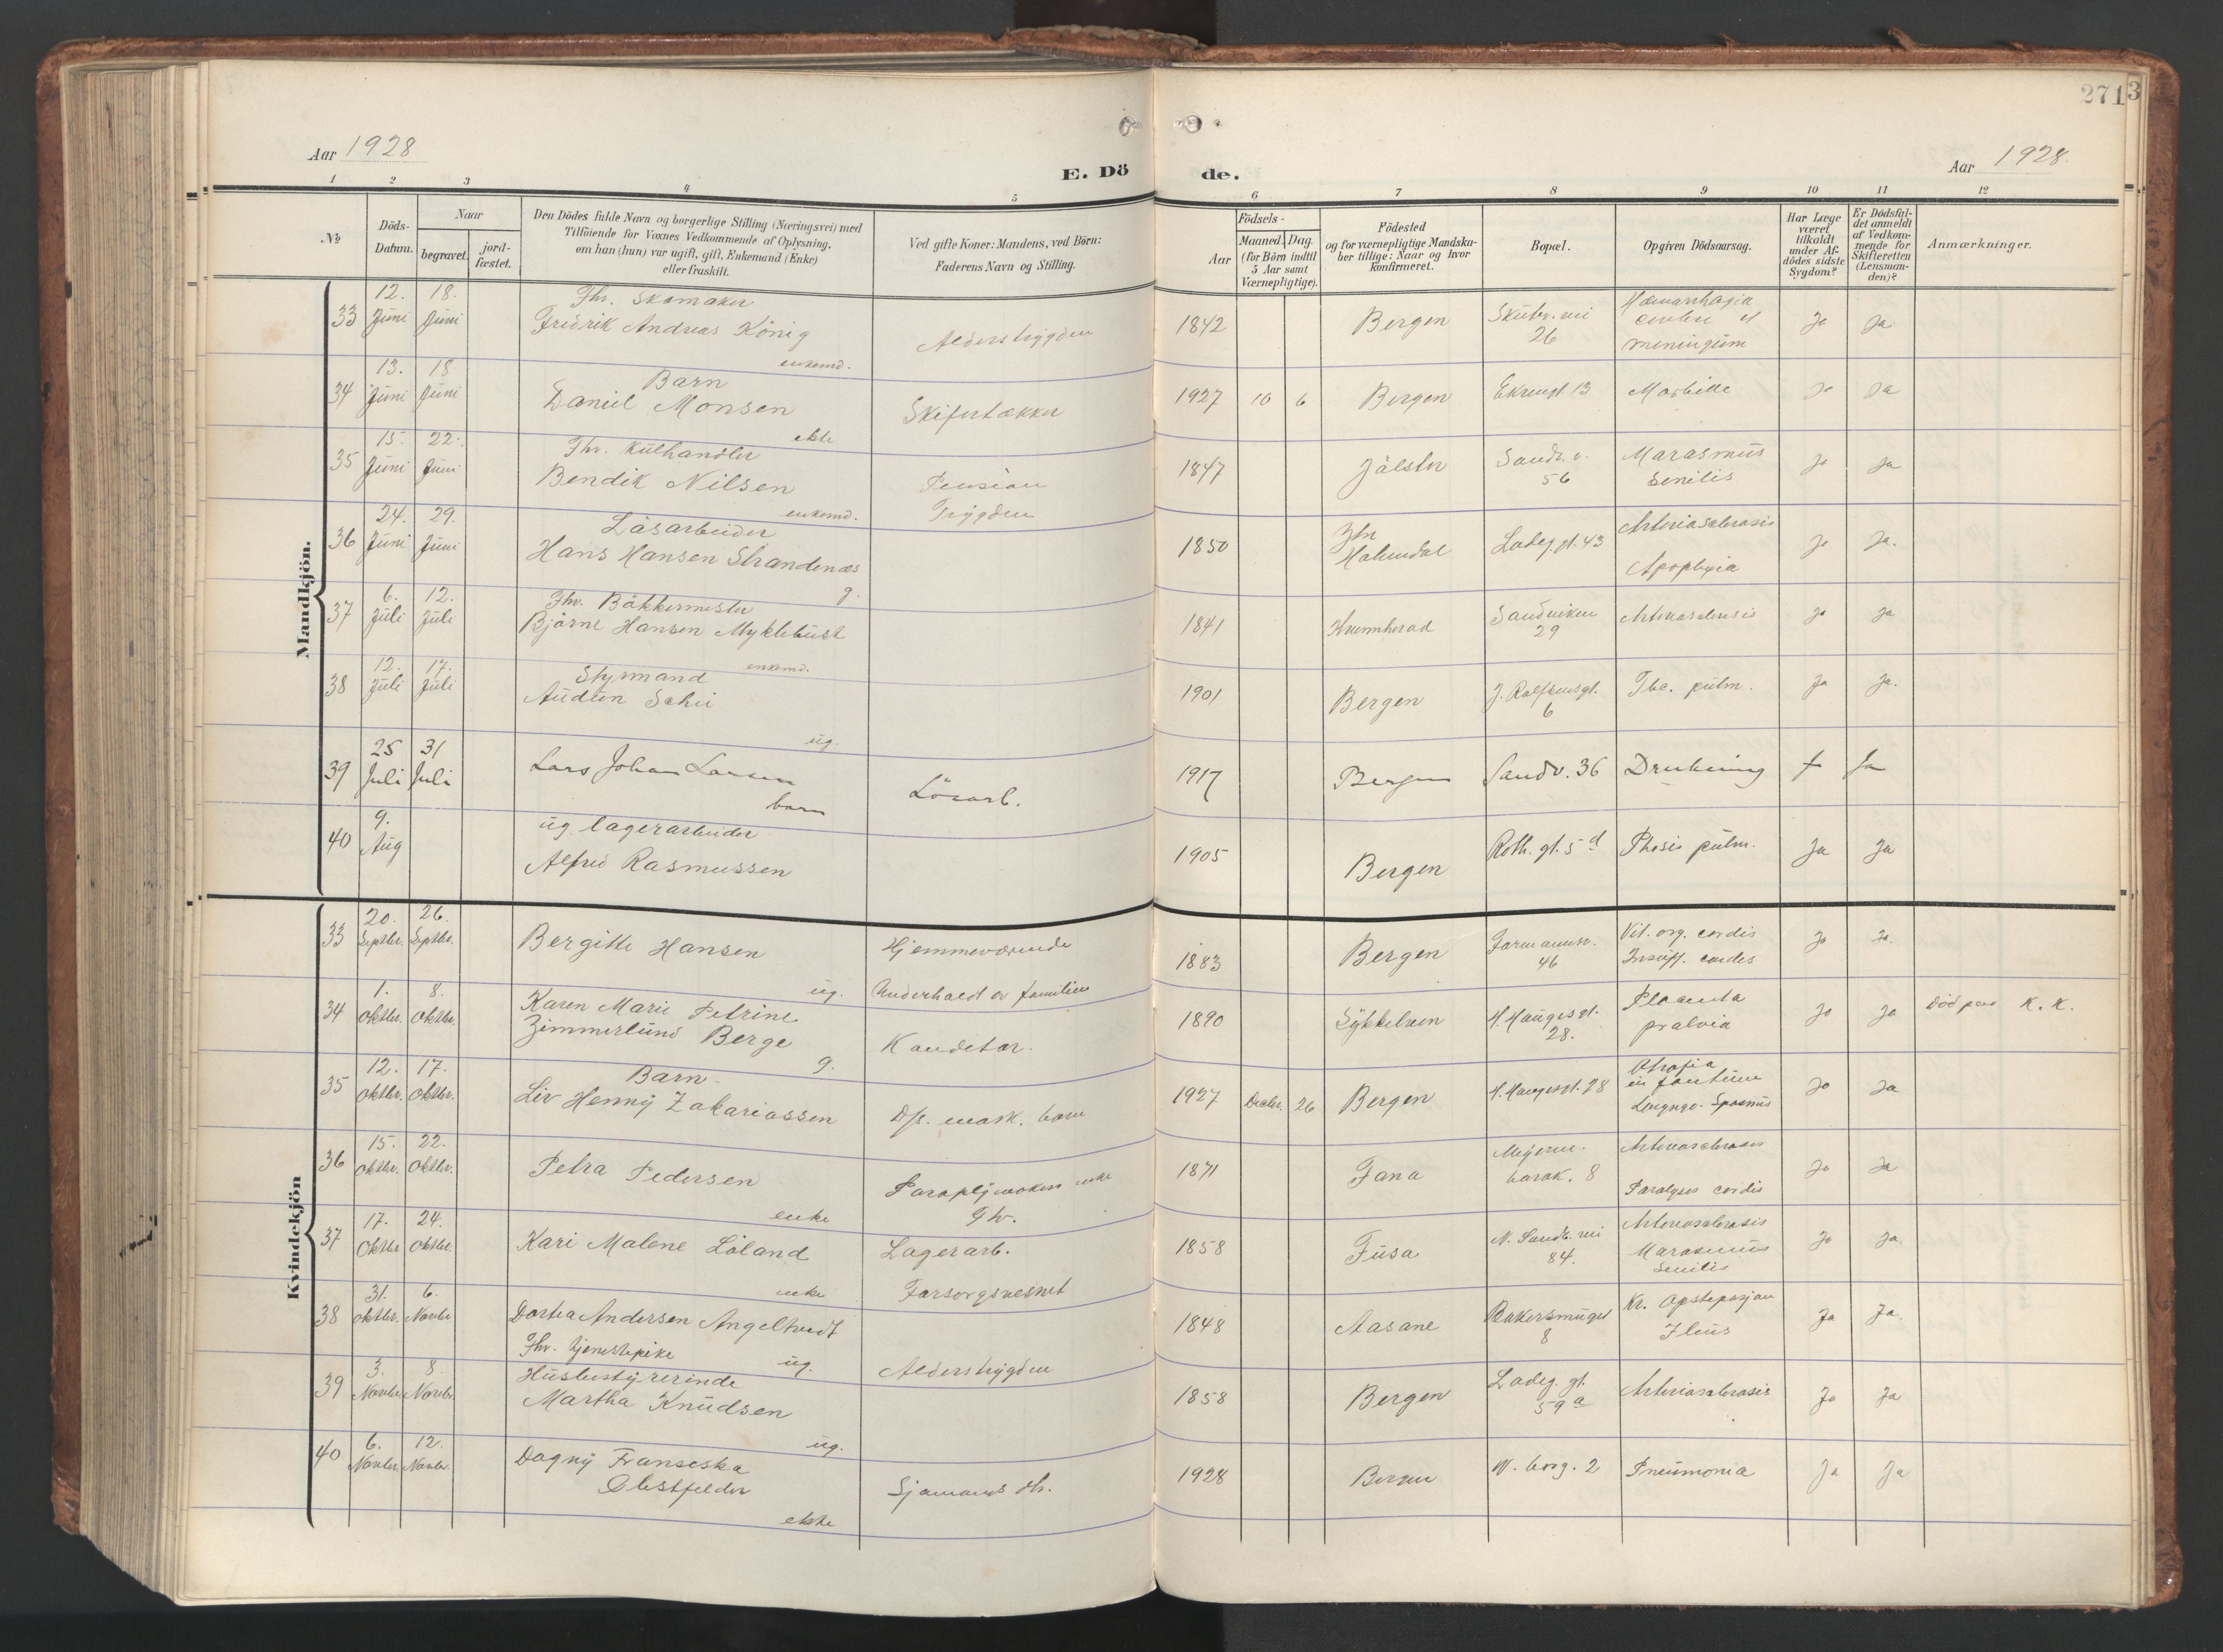 271
3
Aar 1928
E. Dö
de.
Aar 1928.
1 2 3 4 5 6 7 8 9 10 11 12
No
Döds-
Datum.
Naar
begravet.
jord-
fæstet.
Den Dödes fulde Navn og borgerlige Stilling (Næringsvei) med
Tilföiende for Voxnes Vedkommende af Oplysning,
om han (hun) var ugift, gift, Enkemand (Enke)
eller fraskilt.
Ved gifte Koner: Mandens, ved Börn:
Faderens Navn og Stilling.
Födsels-
Aar
Maaned. Dag.
(for Börn indtil
5 Aar samt
Værnepligtige).
Födested
og for værnepligtige Mandska-
ber tillige: Naar og hvor
konfirmeret.
Bopæl.
Opgiven Dödsaarsag.
Har Læge
været
tilkaldt
under Af-
dödes sidste
Sygdom?
Er Dödsfal-
det anmeldt
af Vedkom-
mende for
Skifteretten
(Lensman-
den)?
Anmærkninger.
Mandkjön.
33 12. Juni 18. Juni
Fhv. Skomaker
Fredrik Andreas König
enkemd.
Alderstrygden
1842 Bergen
26
meningium
Ja Ja
34 13. Juni 18 Juni
Barn
Daniel Monsen
ekte
Skifertækker
1927 10 6 Bergen Ekrengt 13 Morbille Ja Ja
35 15. Juni 22. Juni
Fhv. Kulhandler
Bendik Nilsen
enkemd.
Pension
Trygden
1847 Jölster Sandv. v.
56
Marasmus
Senilis
Ja Ja
36 24. Juni 29. Juni
Lösarbeider
Hans Hansen Strandenæs
g.
1850
Ladeg. gt. 43
Arteriosclerosis
Apoplexia
Ja Ja.
37 6. Juli 12. Juli
Fhv. Bakkermester
Bjarne Hansen Myklebust
enkemd.
1841 Kvinnherad Sandviken
29
Arteriosclerosis Ja Ja
38 12. Juli 17. Juli
Styrmand
Audun
ug.
1901 Bergen J. Rolfsensgt.
6
Tbc. pulm. Ja Ja.
39 25 Juli 31 Juli
Lars Johan Larsen
barn
Lösarb.
1917 Bergen Sandv. 36 Drukning Ja
40 9. Aug
ug lagerarbeider
Alfred Rasmussen
1905 Bergen Roth. gt. 5 d pulm. Ja Ja
Kvindekjön
33 20. Septbr. 26. Septbr.
Bergitte Hansen
ug.
Hjemmeværende
Underholdt av familien
1883 Bergen
46
Vit. org. cordis
Insuff. cordis
Ja Ja.
34 1. Oktbr. 8. Oktbr.
Karen Marie Petrine
Zimmerlund Berge
g.
Konditor.
1890 Sykkelven H. Haugesgt.
28.
Placenta
prævia
Ja Ja Död paa K. K.
35 12. Oktbr. 17. Oktbr.
Barn
Liv Henny Zakariassen
barn
1927 Decbr. 26 Bergen H. Haugesgt. 28
Atrofia
infantum
Ja Ja
36 15. Oktbr. 22. Oktbr.
Petra Pedersen
enke
Paraplymakers enke
Fhv.
1871 Fana
barak. 8
Arteriosclerosis
Paralyses cordis
Ja Ja
37 17. Oktbr 24. Oktbr.
Kari Malene Löland
enke
Lagerarb.
Forsorgsvesnet
1858 Fusa N. Sandv. vei
84.
Arteriosclerosis
Marasmus
Senilis
Ja Ja.
38 31. Oktbr. 6. Novbr
Dortea Andersen Angeltvedt
Fhv. tjenestepike
ug.
Alderstrygden
1848 Aasane Bakersmuget
8
Kr. Opstipasjon
Ileus
Ja Ja.
39 3. Novbr. 8. Novbr.
Husbestyrerinde
Martha Knudsen
ug.
1858 Bergen Ladeg. gt.
59 a
Arteriosclerosis Ja Ja
40 6. Novbr. 12. Novbr.
Dagny Franseska
Obstfelder
ekte
Sjömands
1928 Bergen 2 Pneumonia Ja Ja